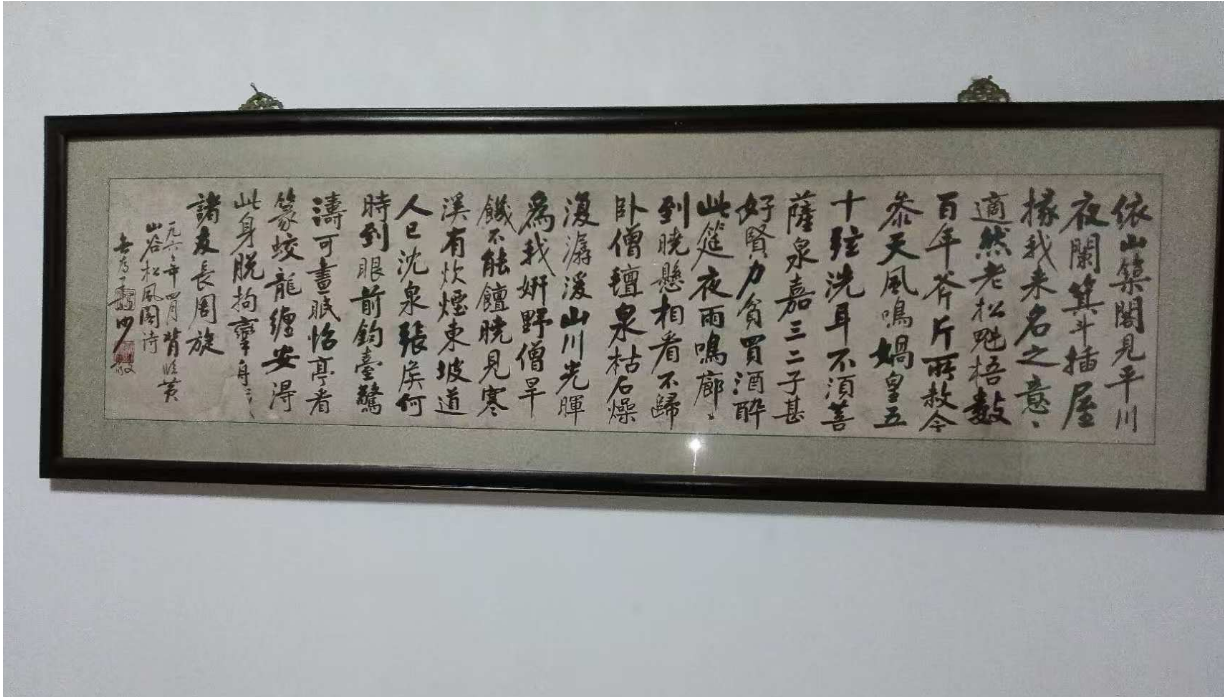 依山築閣見平川
夜闌箕斗插屋
椽我来名之意〻
適然老松魁梧數
百年斧斤所赦今
参天風鳴媧皇五
十弦洗耳不須菩
薩泉嘉三二子甚
好賢力貧買酒醉
此筵夜雨鳴廊〻
到曉懸相看不歸
卧僧氊泉枯石燥
復潺湲山川光暉
為我妍野僧旱
饑不能饘曉見寒
溪有炊煙東坡道
人已沈泉張侯何
時到眼前釣臺驚
濤可晝眠怡亭看
篆蛟龍纏安得
此身脱拘攣舟〻
諸友長周旋
一九六二年四月背临黄
山谷松風閣詩